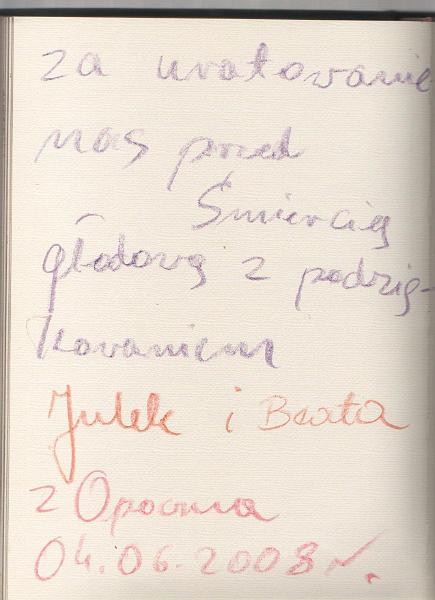 za uratowanie
nas przed
Śmiercią
głodową z podzię-
kowaniem
Julek i Beata
z Opoczna
04.06.2008 r.